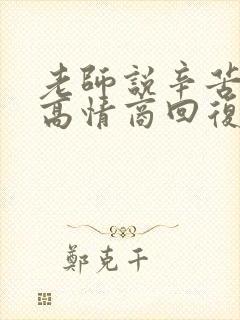 老師說辛苦
高情商回復
鄭克干